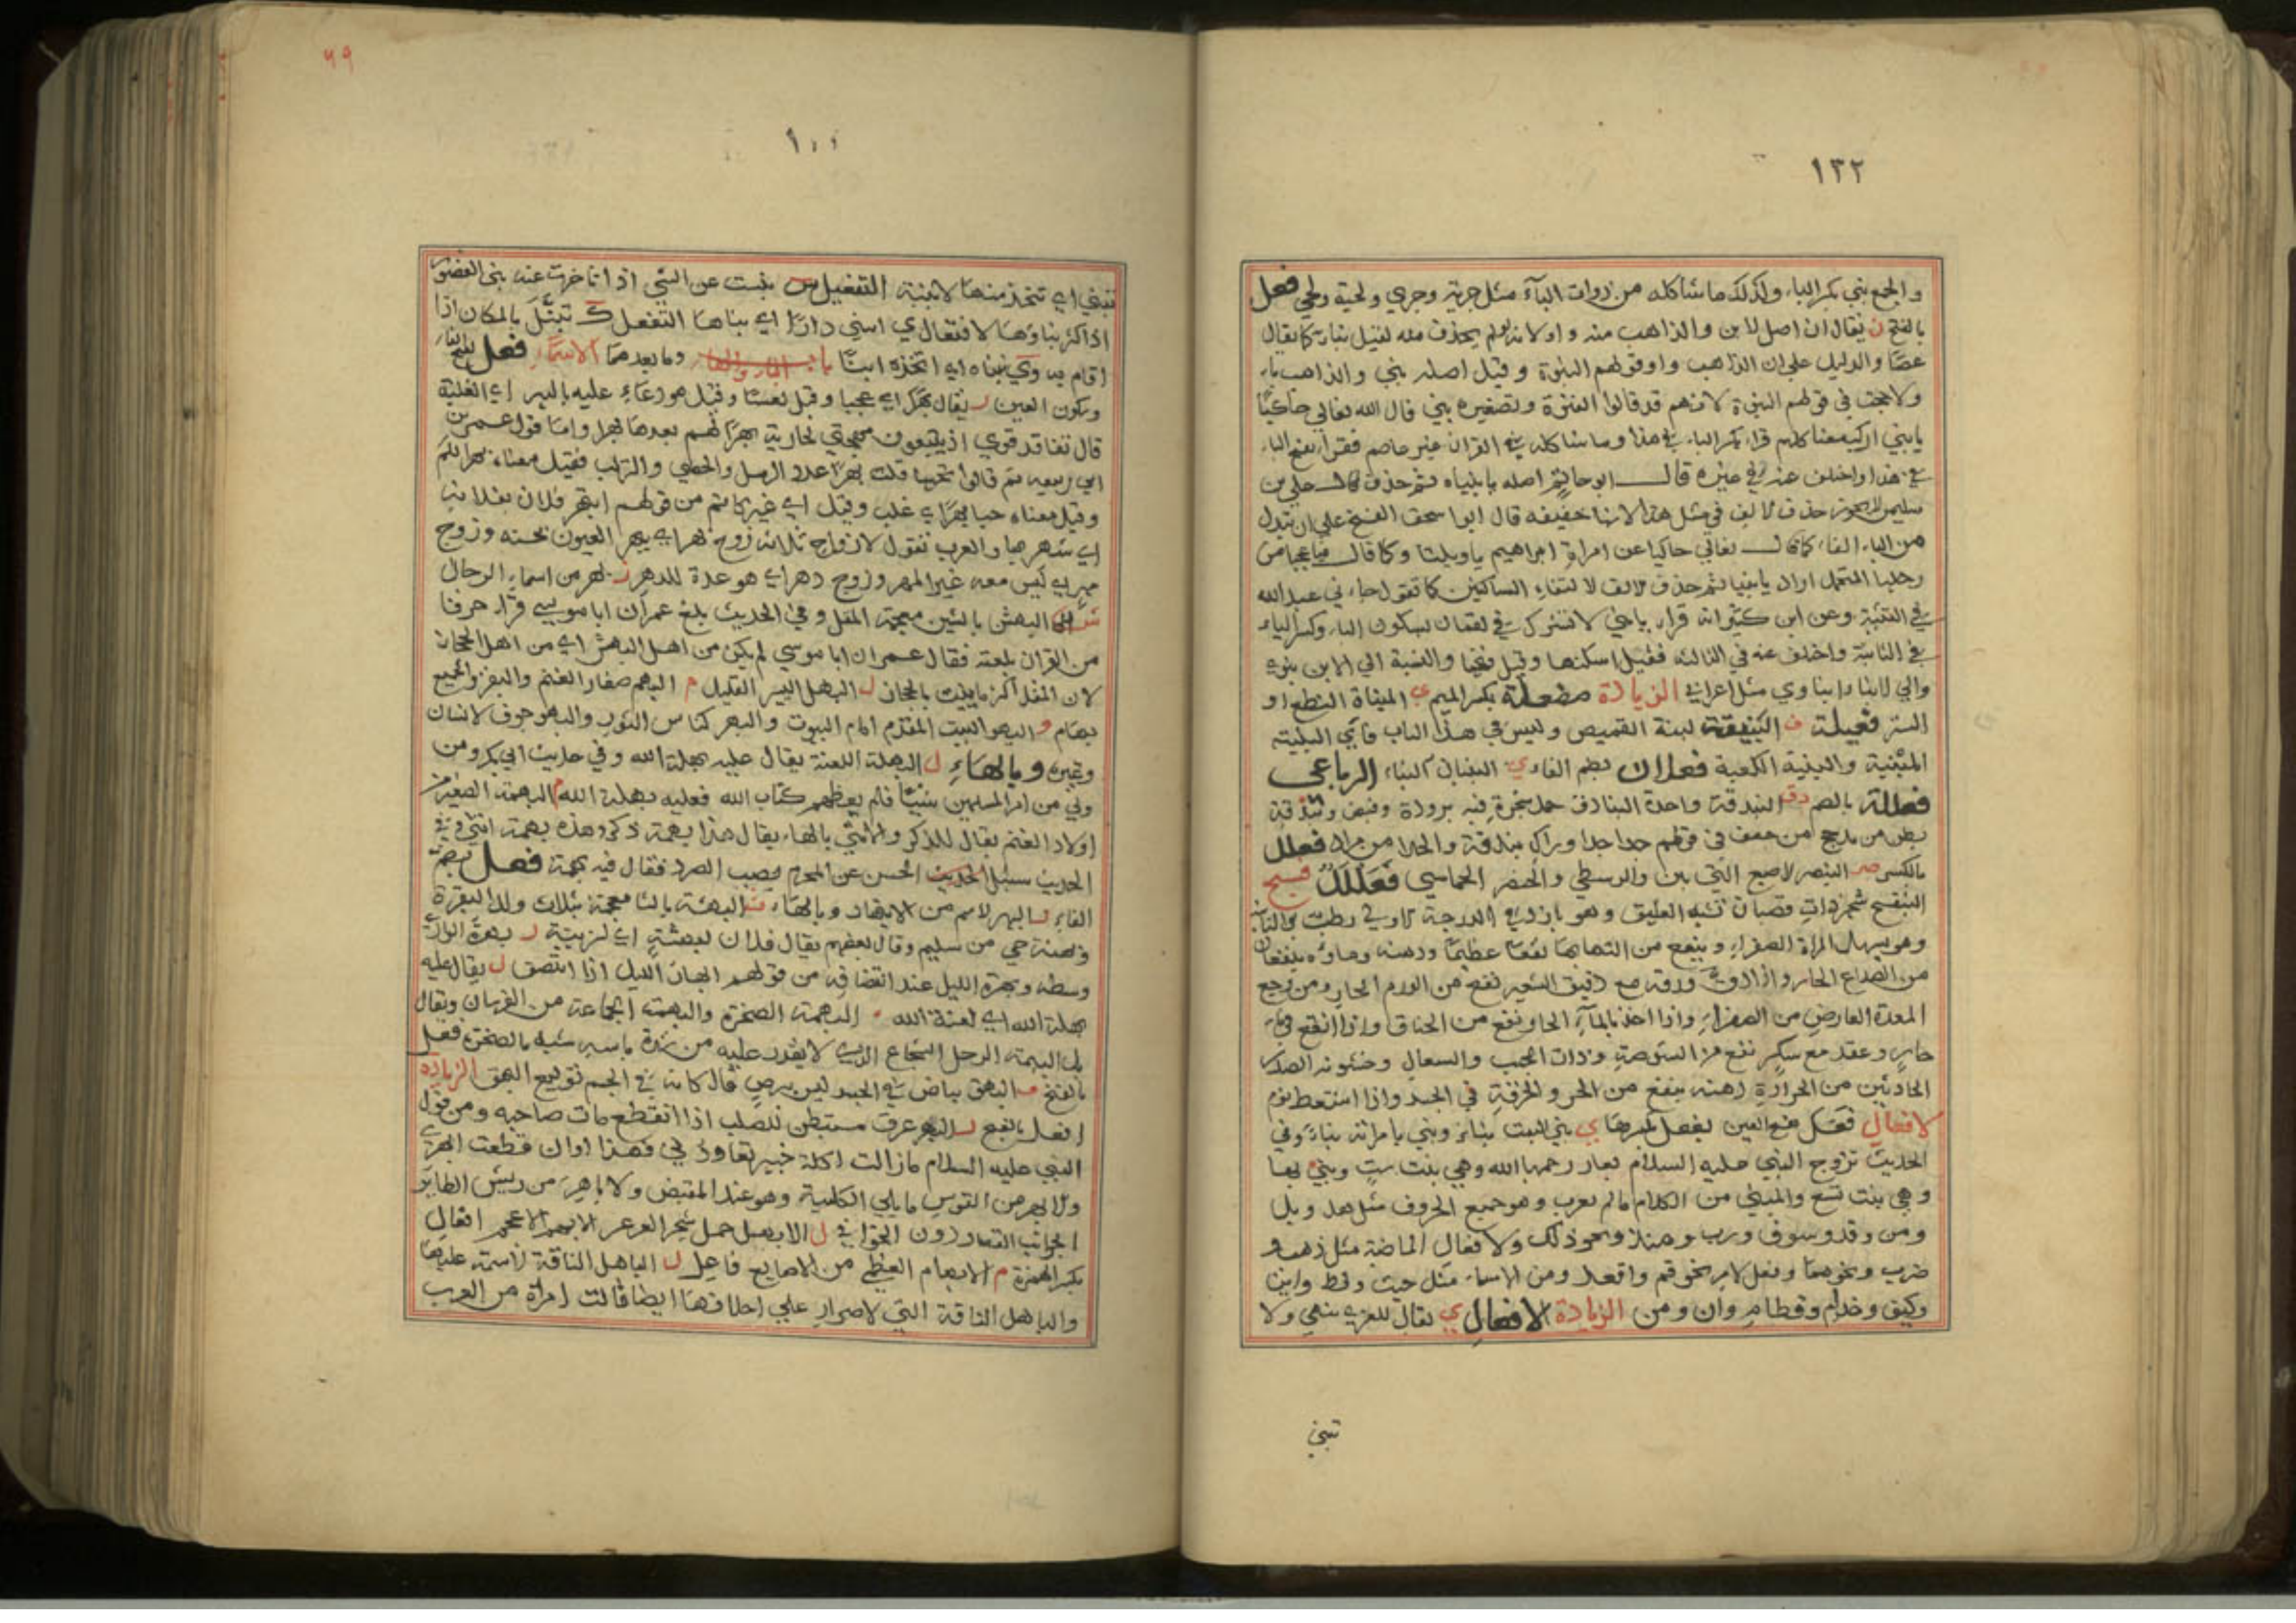 ١٣٢
والجمع بنى بكسر الباء وكذلك ما شاكله من ذوات الياء مثل جزية وجزي ولحية ولحي فعل
بالفتح ن يقال ان اصل الابن والذاهب منه واو لانه لو لم يحذف منه لقيل بنا كما يقال
عصًا والدليل على ان الذاهب واو قولهم البنوة وقيل اصله بني والذاهب ياء
ولا حجة في قولهم البنوة لانهم قد قالوا الفتوة وتصغيره بني قال الله تعالى حاكيًا
يا بني اركب معنا كلهم قراء بكسر الياء في هذا وما شاكله في القران غير عاصم فقرا بفتح الياء
في هذا واختلف عنه في غيره قال ابو حاتم اصله يا بنياه ثم حذف قال علي بن
سليمن لا يجوز حذف الالف في مثل هذا لانها خفيفة قال ابو اسحق الفتح على ان تبدل
من الياء الفا كما قال تعالى حاكيا عن امراة ابراهيم يا ويلتا وكما قال فيا عجبا من
رحلها المتحمل اراد يا بنيا ثم حذف الالف لالتقاء الساكنين كما تقول جاءني عبد الله
في التثنية وعن ابن كثير انه قرا يا بني لا تشرك في لقمان بسكون الياء وكسر الياء
في الثانية واختلف عنه في الثالثة فقيل اسكنها وقيل فتحها والنسبة الى الابن بنوي
والى الابناء ابناوي مثل اعرابي الزيادة مفعلة بكسر الميم ي المبناة النطع او
الستر فعيلة ق البنيقة لبنة القميص وليس في هذا الباب فاي البلية
المبنية والبنية الكعبة فعلان بضم الفاء ي البنيان البناء الرباعي
فعللة بالضم دق البندقة واحدة البنادق حمل شجرة فيه برودة وقبض وبندقة
بطن من مذحج من سعف في قولهم حدا حدا وراك بندقة والحدا من مراد فعلل
بالكسر صر البنصر الاصبع التي بين الوسطى والخنصر الخماسي فعللل فسج
البنفسج شجر ذات قصبان تشبه العليق وهو بارد في الدرجة الاولى رطب في الثانية
وهو يسهل المرة الصفراء وينفع من التهابها نفعًا عظيمًا ودهنه وماؤه ينفعان
من الصداع الحار واذا دق ورقه مع دقيق الشعير نفع من الورم الحار ومن وجع
المعدة العارض من الصفراء واذا اخذ بالماء الحار نفع من الخناق واذا انقع في ماء
حار وعقد مع سكر نفع من الشوصة وذات الجنب والسعال وخشونة الصدر
الحادثين من الحرارة ودهنه ينفع من الحر والحرقة في الجسد واذا استعط نوم
الافعال فعل بفتح العين يفعل بكسرها ي بنى البيت بناء وبنى بامراته بناء وفي
الحديث تزوج النبي عليه السلام بعائشة رحمها الله وهي بنت ست وبنى بها
وهي بنت تسع والمبني من الكلام ما لم يعرب وهو جميع الحروف مثل هل وبل
ومن وقد وسوف ورب ومنذ ونحو ذلك والافعال الماضية مثل ذهب و
ضرب ونحوهما وفعل الامر نحو قم واقعد ومن الاسماء مثل حيث وقط واين
وكيف وحذام وقطام وان ومن الزيادة الافعال ي يقال المعزى تبهي ولا
تبني
٦٩
تبني اي تتخذ منها الابنية التفعيل س بنست عن الشي اذا تاخرت عنه بنى القصور
اذا اكثر بناوها الافتعال ي ابتنى دارًا اي بناها التفعل ك تبنك بالمكان اذا
اقام به وي تبناه اي اتخذه ابنًا باب الباء والهاء وما بعدهما الاسماء فعل بفتح الفاء
وسكون العين ر يقال بهرًا اي عجبا وقيل تعسًا وقيل هو دعاء عليه بالبهر اي الغلبة
قال تفاقد قومي اذ يبيعون مهجتي بجارية بهرًا لهم بعدها بهرا واما قول عمر بن
ابي ربيعة ثم قالوا تحبها قلت بهرًا عدد الرمل والحصى والتراب فقيل معناه بهرا لكم
وقيل معناه حبا بهرًا اي غلب وقيل اي غير كاتم من قولهم ابتهر فلان بفلانة
اي شهر بها والعرب تقول الازواج ثلاثة زوج بهر اي يبهر العيون بحسنه وزوج
مهر اي ليس معه غير المهر وزوج دهر اي هو عدة للدهر ر بهر من اسماء الرجال
ش البهش بالشين معجمة المقل وفي الحديث بلغ عمر ان ابا موسى قرا حرفا
من القران بلغته فقال عمر ان ابا موسى لم يكن من اهل البهش اي من اهل الحجاز
لان المقل اكثر ما ينبت بالحجاز ل البهل اليسير القليل م البهم صغار الغنم والبقر والجميع
بهام و البهو البيت المقدم امام البيوت والبهو كناس الثور والبهو جوف الانسان
وغيره وبالهاء ل البهلة اللعنة يقال عليه بهلة الله وفي حديث ابي بكر ومن
ولي من امر المسلمين شيئًا فلم يعطهم كتاب الله فعليه بهلة الله م البهمة الصغير من
اولاد الغنم يقال للذكر والانثى بالهاء يقال هذا بهمة ذكر وهذه بهمة انثى وفي
الحديث سئل الحسن عن المحرم يصيب الصرد فقال فيه بهمة فعل بضم
الفاء ر البهر الاسم من الانبهار وبالهاء ث البهثة بالثاء معجمة بثلاث ولد البقرة
وبهثة حي من سليم وقال بعضهم يقال فلان لبهثة اي لزنية ر بهرة الوادي
وسطه وبهرة الليل عند انتصافه من قولهم ابهار الليل اذا انتصف ل يقال عليه
بهلة الله اي لعنة الله م البهمة الصخرة والبهمة الجماعة من الفرسان ويقال
بل البهمة الرجل الشجاع الذي لا يقدر عليه من شدة باسه شبه بالصخرة فعل
بالفتح ق البهق بياض في الجسد ليس ببرص قال كانه في الجسم توليع البهق الزيادة
افعل بالفتح ر الابهر عرق مستبطن للصلب اذا انقطع مات صاحبه ومن قول
النبي عليه السلام ما زالت اكلة خيبر تعاودني فهذا اوان قطعت ابهري
والابهر من القوس ما يلي الكلية وهو عند المقبض والاباهر من ريش الطائر
الجوانب القصار دون الخوافي ل الابهل حمل شجر العرعر الابهم الاعجم افعال
بكسر الهمزة م الابهام العظمى من الاصابع فاعل ل الباهل الناقة لا سمة عليها
والباهل الناقة التي لا صرار على اخلافها ايضا قالت امراة من العرب